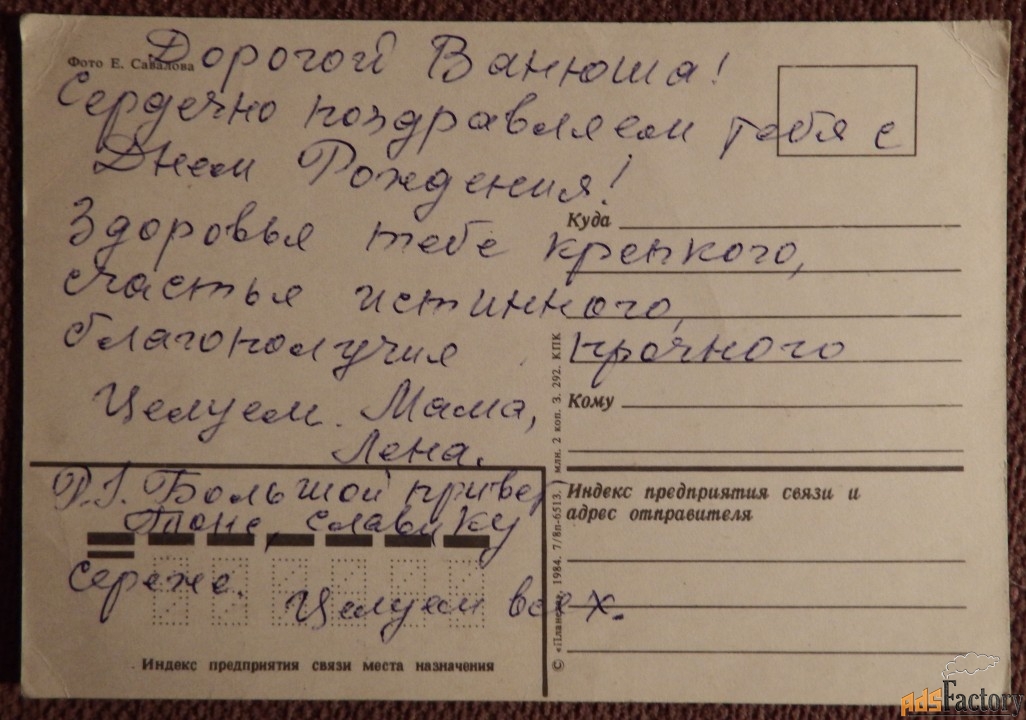 Фото Е. Савалова
Дорогой Ванюша!
Сердечно поздравляем тебя с
Днем Рождения!
Здоровья тебе крепкого,
счастья истинного,
благополучия прочного
Целуем. Мама,
Лена.
P.S. Большой привет
Тоне, Славику
Сереже.
Целуем всех.
Куда
Кому
Индекс предприятия связи и
адрес отправителя
Индекс предприятия связи места назначения
© «Планета», 1984. 7/8п-6513. млн. 2 коп. З. 292. КПК
AdsFactory